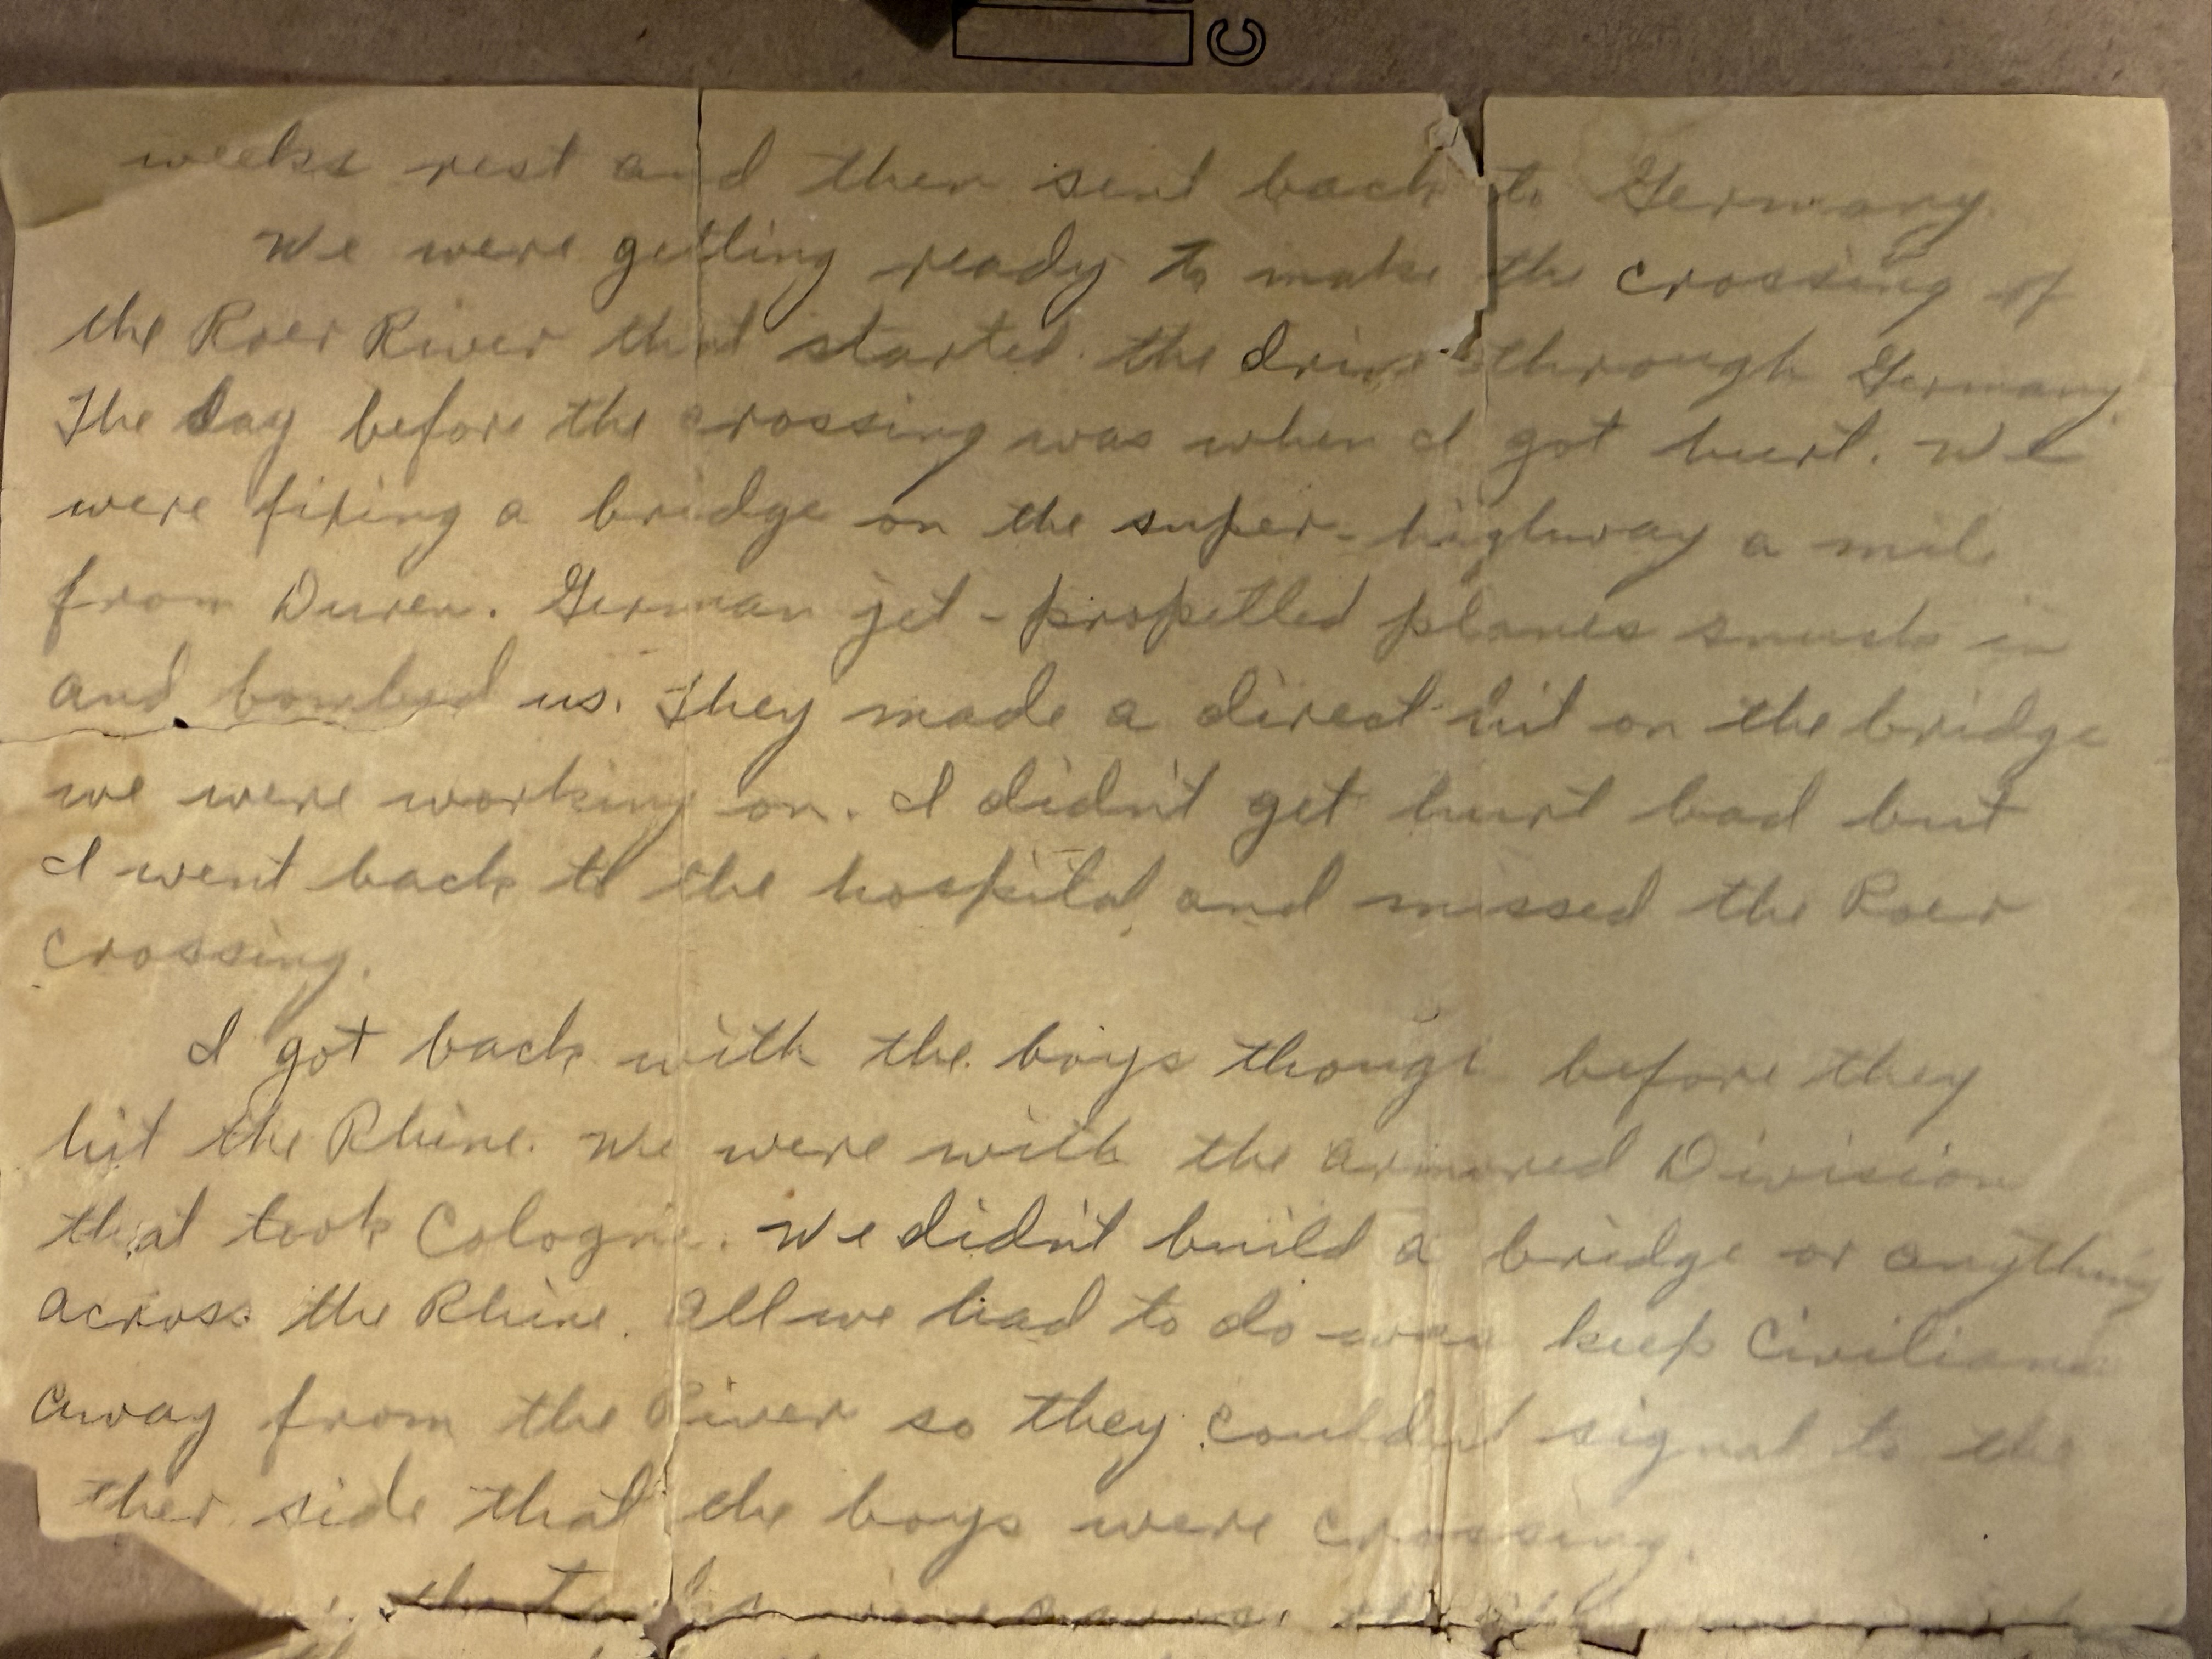 C
weeks rest and then sent back to Germany.
We were getting ready to make the crossing of
the Roer River that started the drive through Germany.
The day before the crossing was when I got hurt. We
were fixing a bridge on the super-highway a mile
from Duren. German jet-propelled planes snuck in
and bombed us. They made a direct hit on the bridge
we were working on. I didn't get hurt bad but
I went back to the hospital and missed the Roer
crossing.
I got back with the boys though before they
hit the Rhine. We were with the armored Division
that took Cologne. We didn't build a bridge or anything
across the Rhine. All we had to do was keep Civilians
away from the River so they couldn't signal to the
ther side that the boys were crossing.
the